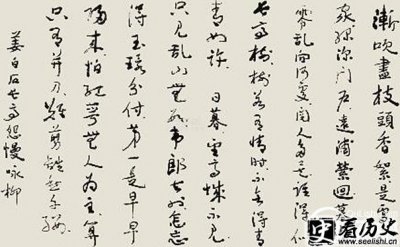 漸吹盡枝頭香絮是處
家綠深門戶遠浦縈回暮
零亂向何處閱人多矣誰得似
長亭樹樹若有情時不會得青
青如許 日暮望高城不見
只見亂山無數韋郎去也怎忘
得玉環分付第一是早早
歸來怕紅萼無人為主算
只有并刀難剪離愁千縷
姜白石長亭怨慢詠柳
看历史
www.seelishi.cn